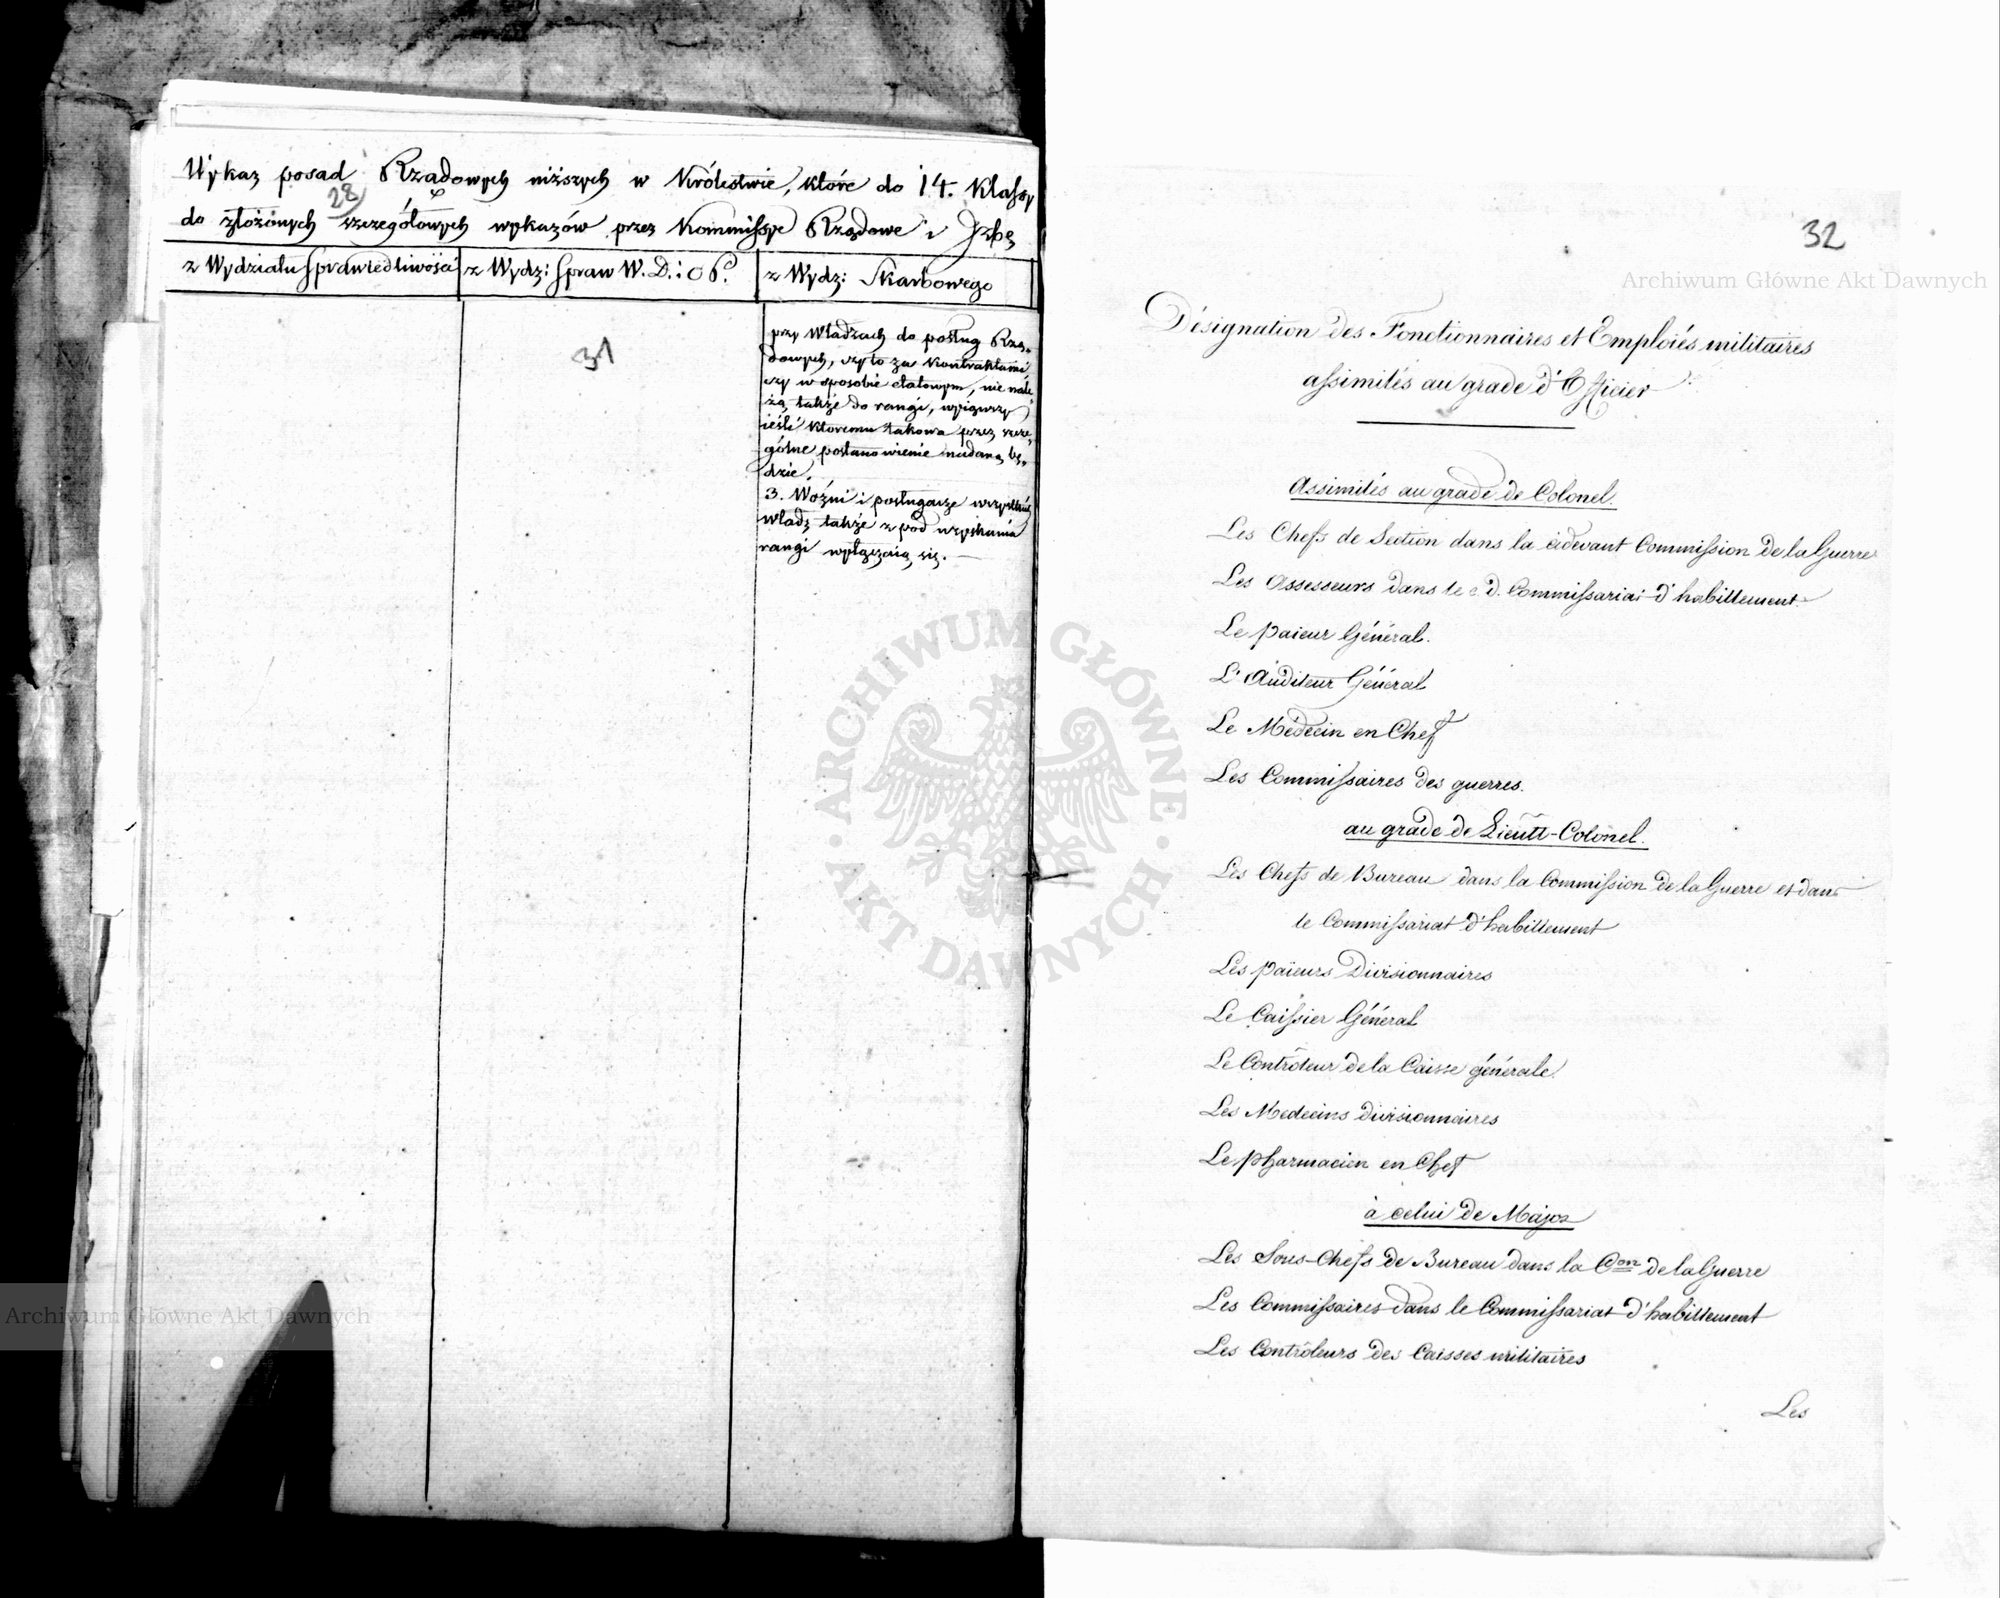 Wykaz posad Rządowych niższych w Królestwie, które do 14. Klassy
28
do złożonych szczegółowych wykazów przez Kommissye Rządowe i Izbę
z Wydziału Sprawiedliwości
z Wydz: Spraw W. D. i O P.
z Wydz: Skarbowego
31
przy Władzach do posług Rzą-
dowych, czy to za Kontraktami
czy w sposobie etatowym, nie nale-
żą także do rangi, wyjąwszy
ieśli któremu takowa przez szcze-
gólne postanowienie nadaną bę-
dzie.
3. Woźni i posługacze wszystkich
Władz także z pod uzyskania
rangi wyłączaią się. —
32
Désignation des Fonctionnaires et Emploiés militaires
assimilés au grade d'Officier
Assimilés au grade de Colonel.
Les Chefs de Section dans la cidevant Commission de la Guerre
Les Assesseurs dans le c. d. Commissariat d'habillement
Le paieur Général.
L'Auditeur Général
Le Médecin en Chef
Les Commissaires des guerres.
au grade de Lieutt-Colonel.
Les Chefs de Bureau dans la Commission de la Guerre et dans
le Commissariat d'habillement
Les païeurs Divisionnaires
Le Caissier Général
Le Contrôleur de la Caisse générale.
Les Medecins divisionnaires
Le pharmacien en Chef
à celui de Major
Les Sous-Chefs de Bureau dans la Con de la Guerre
Les Commissaires dans le Commissariat d'habillement
Les Contrôleurs des Caisses militaires
Les
Archiwum Główne Akt Dawnych
Archiwum Główne Akt Dawnych
ARCHIWUM GŁÓWNE
AKT DAWNYCH